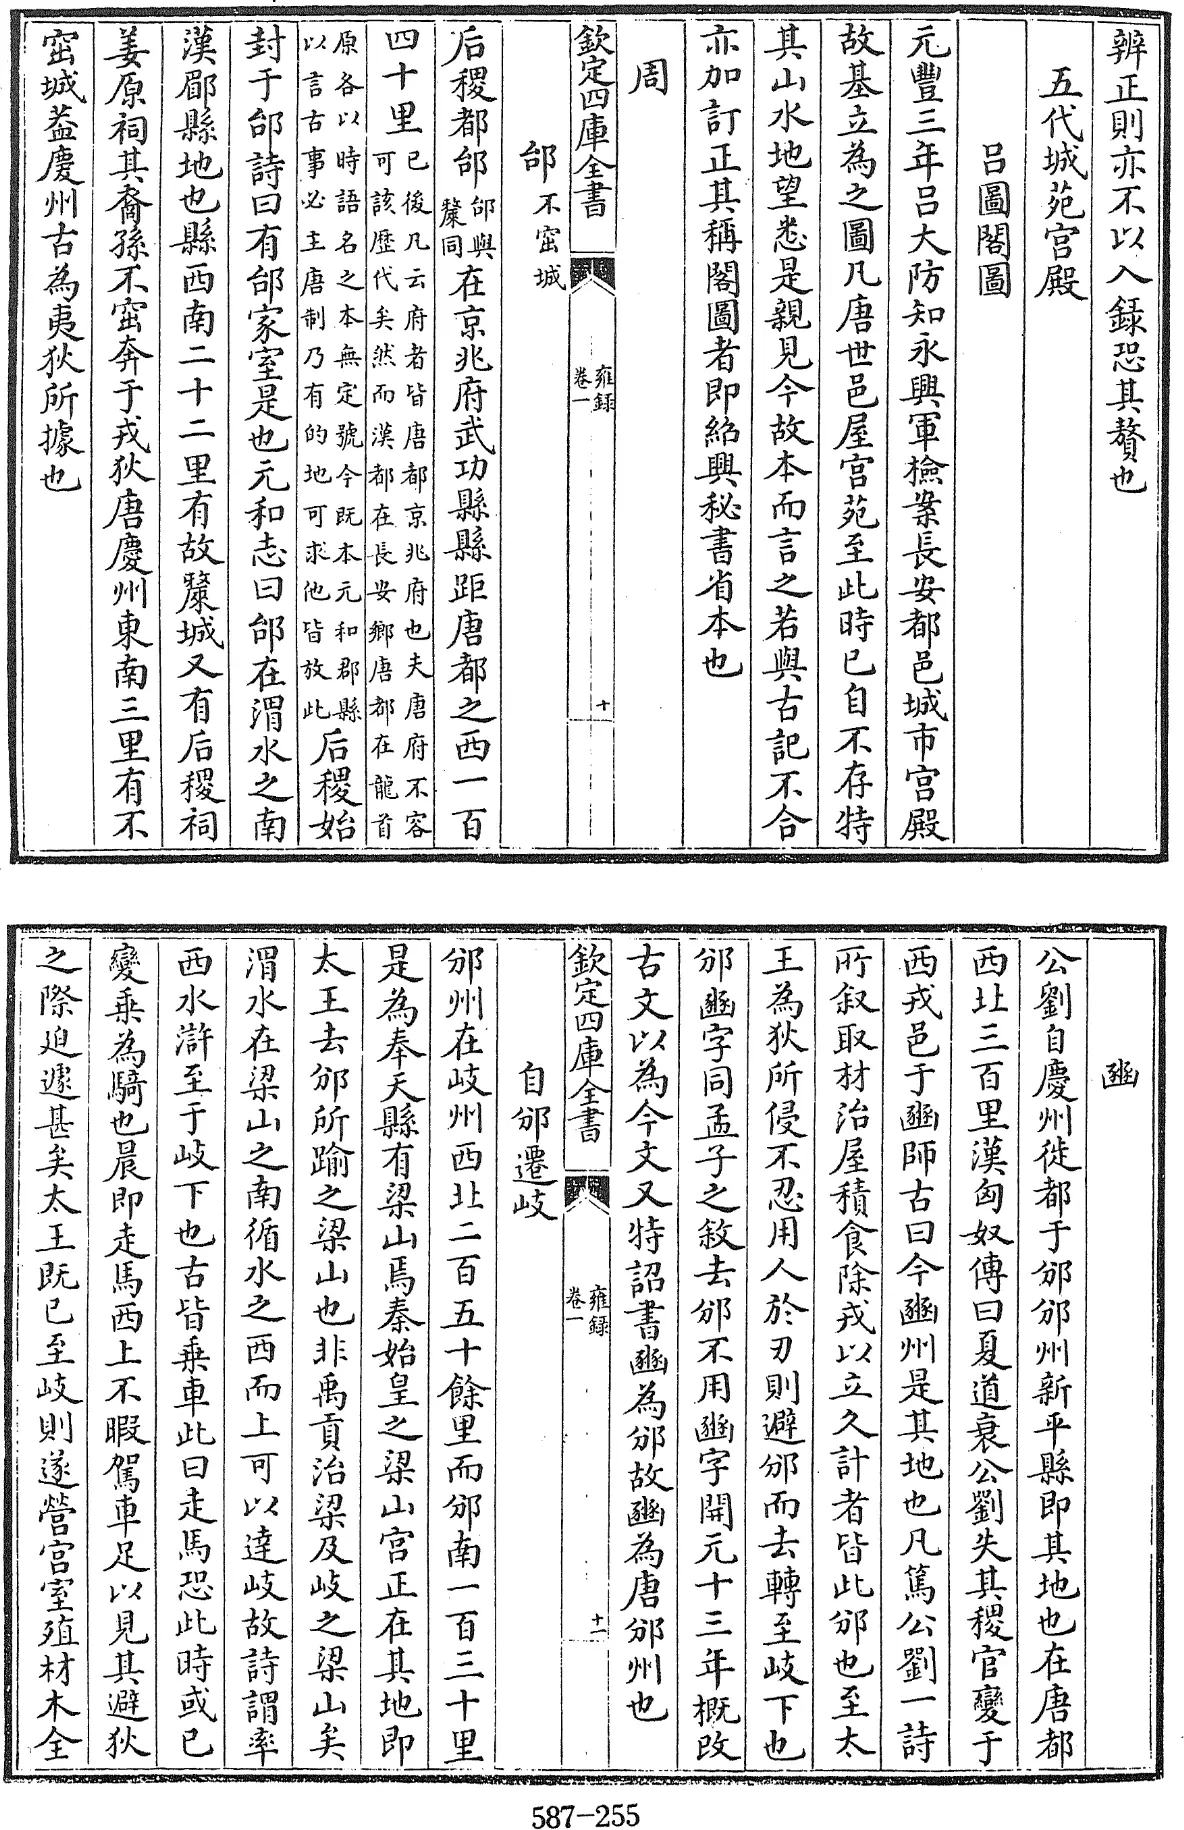 辨正則亦不以入錄恐其贅也
五代城苑宫殿
呂圖閣圖
元豐三年呂大防知永興軍檢案長安都邑城市宫殿
故基立為之圖凡唐世邑屋宫苑至此時已自不存特
其山水地望悉是親見今故本而言之若與古記不合
亦加訂正其稱閣圖者即紹興秘書省本也
周
欽定四庫全書
雍録
卷一
十
邰不窋城
后稷都邰邰與斄同在京兆府武功縣縣距唐都之西一百
四十里已後凡云府者皆唐都京兆府也夫唐府不容可該歷代矣然而漢都在長安鄉唐都在龍首
原各以時語名之本無定號今既本元和郡縣以言古事必主唐制乃有的地可求他皆放此后稷始
封于邰詩曰有邰家室是也元和志曰邰在渭水之南
漢郿縣地也縣西南二十二里有故斄城又有后稷祠
姜原祠其裔孫不窋奔于戎狄唐慶州東南三里有不
窋城葢慶州古為夷狄所據也
豳
公劉自慶州徙都于邠邠州新平縣即其地也在唐都
西北三百里漢匈奴傳曰夏道衰公劉失其稷官變于
西戎邑于豳師古曰今豳州是其地也凡篤公劉一詩
所叙取材治屋積食除戎以立久計者皆此邠也至太
王為狄所侵不忍用人於刃則避邠而去轉至岐下也
邠豳字同孟子之敘去邠不用豳字開元十三年概改
古文以為今文又特詔書豳為邠故豳為唐邠州也
欽定四庫全書
雍録
卷一
十一
自邠遷岐
邠州在岐州西北二百五十餘里而邠南一百三十里
是為奉天縣有梁山焉秦始皇之梁山宫正在其地即
太王去邠所踰之梁山也非禹貢治梁及岐之梁山矣
渭水在梁山之南循水之西而上可以達岐故詩謂率
西水滸至于岐下也古皆乗車此曰走馬恐此時或已
變乗為騎也晨即走馬西上不暇駕車足以見其避狄
之際迫遽甚矣太王既已至岐則遂營宫室殖材木全
587-255